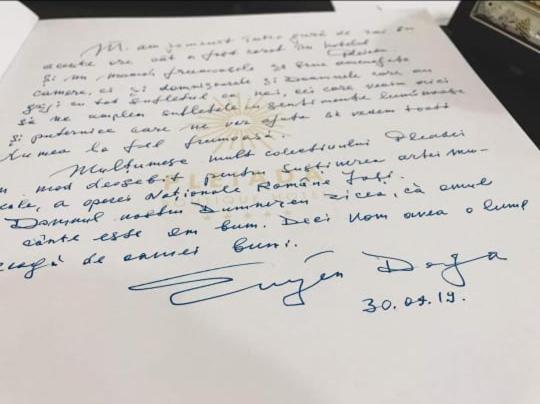 M. am pomenit într-o gură de rai în
aceste ore cât a fost cazat în hotelul Pleiada
și nu numai frumoasele și bine amenajate
camere, ci și domnișoarele și Doamnele care au
grijă cu tot sufletul ca noi, cei care venim aici
să ne umplem sufletele cu sentimente luminoase
și puternice care ne vor ajuta să vedem toată
lumea la fel frumoasă.
Mulțumesc mult colectivului Pleadei
în mod deosebit pentru susținerea artei mu-
cale, a operei Naționale Române Iași.
Domnul nostru Dumnezeu zicea, că omul
cânte este om bun. Deci vom avea o lume
eagă de oameni buni.
PLEIADA
BOUTIQUE
Eugen Doga
30.09.19.